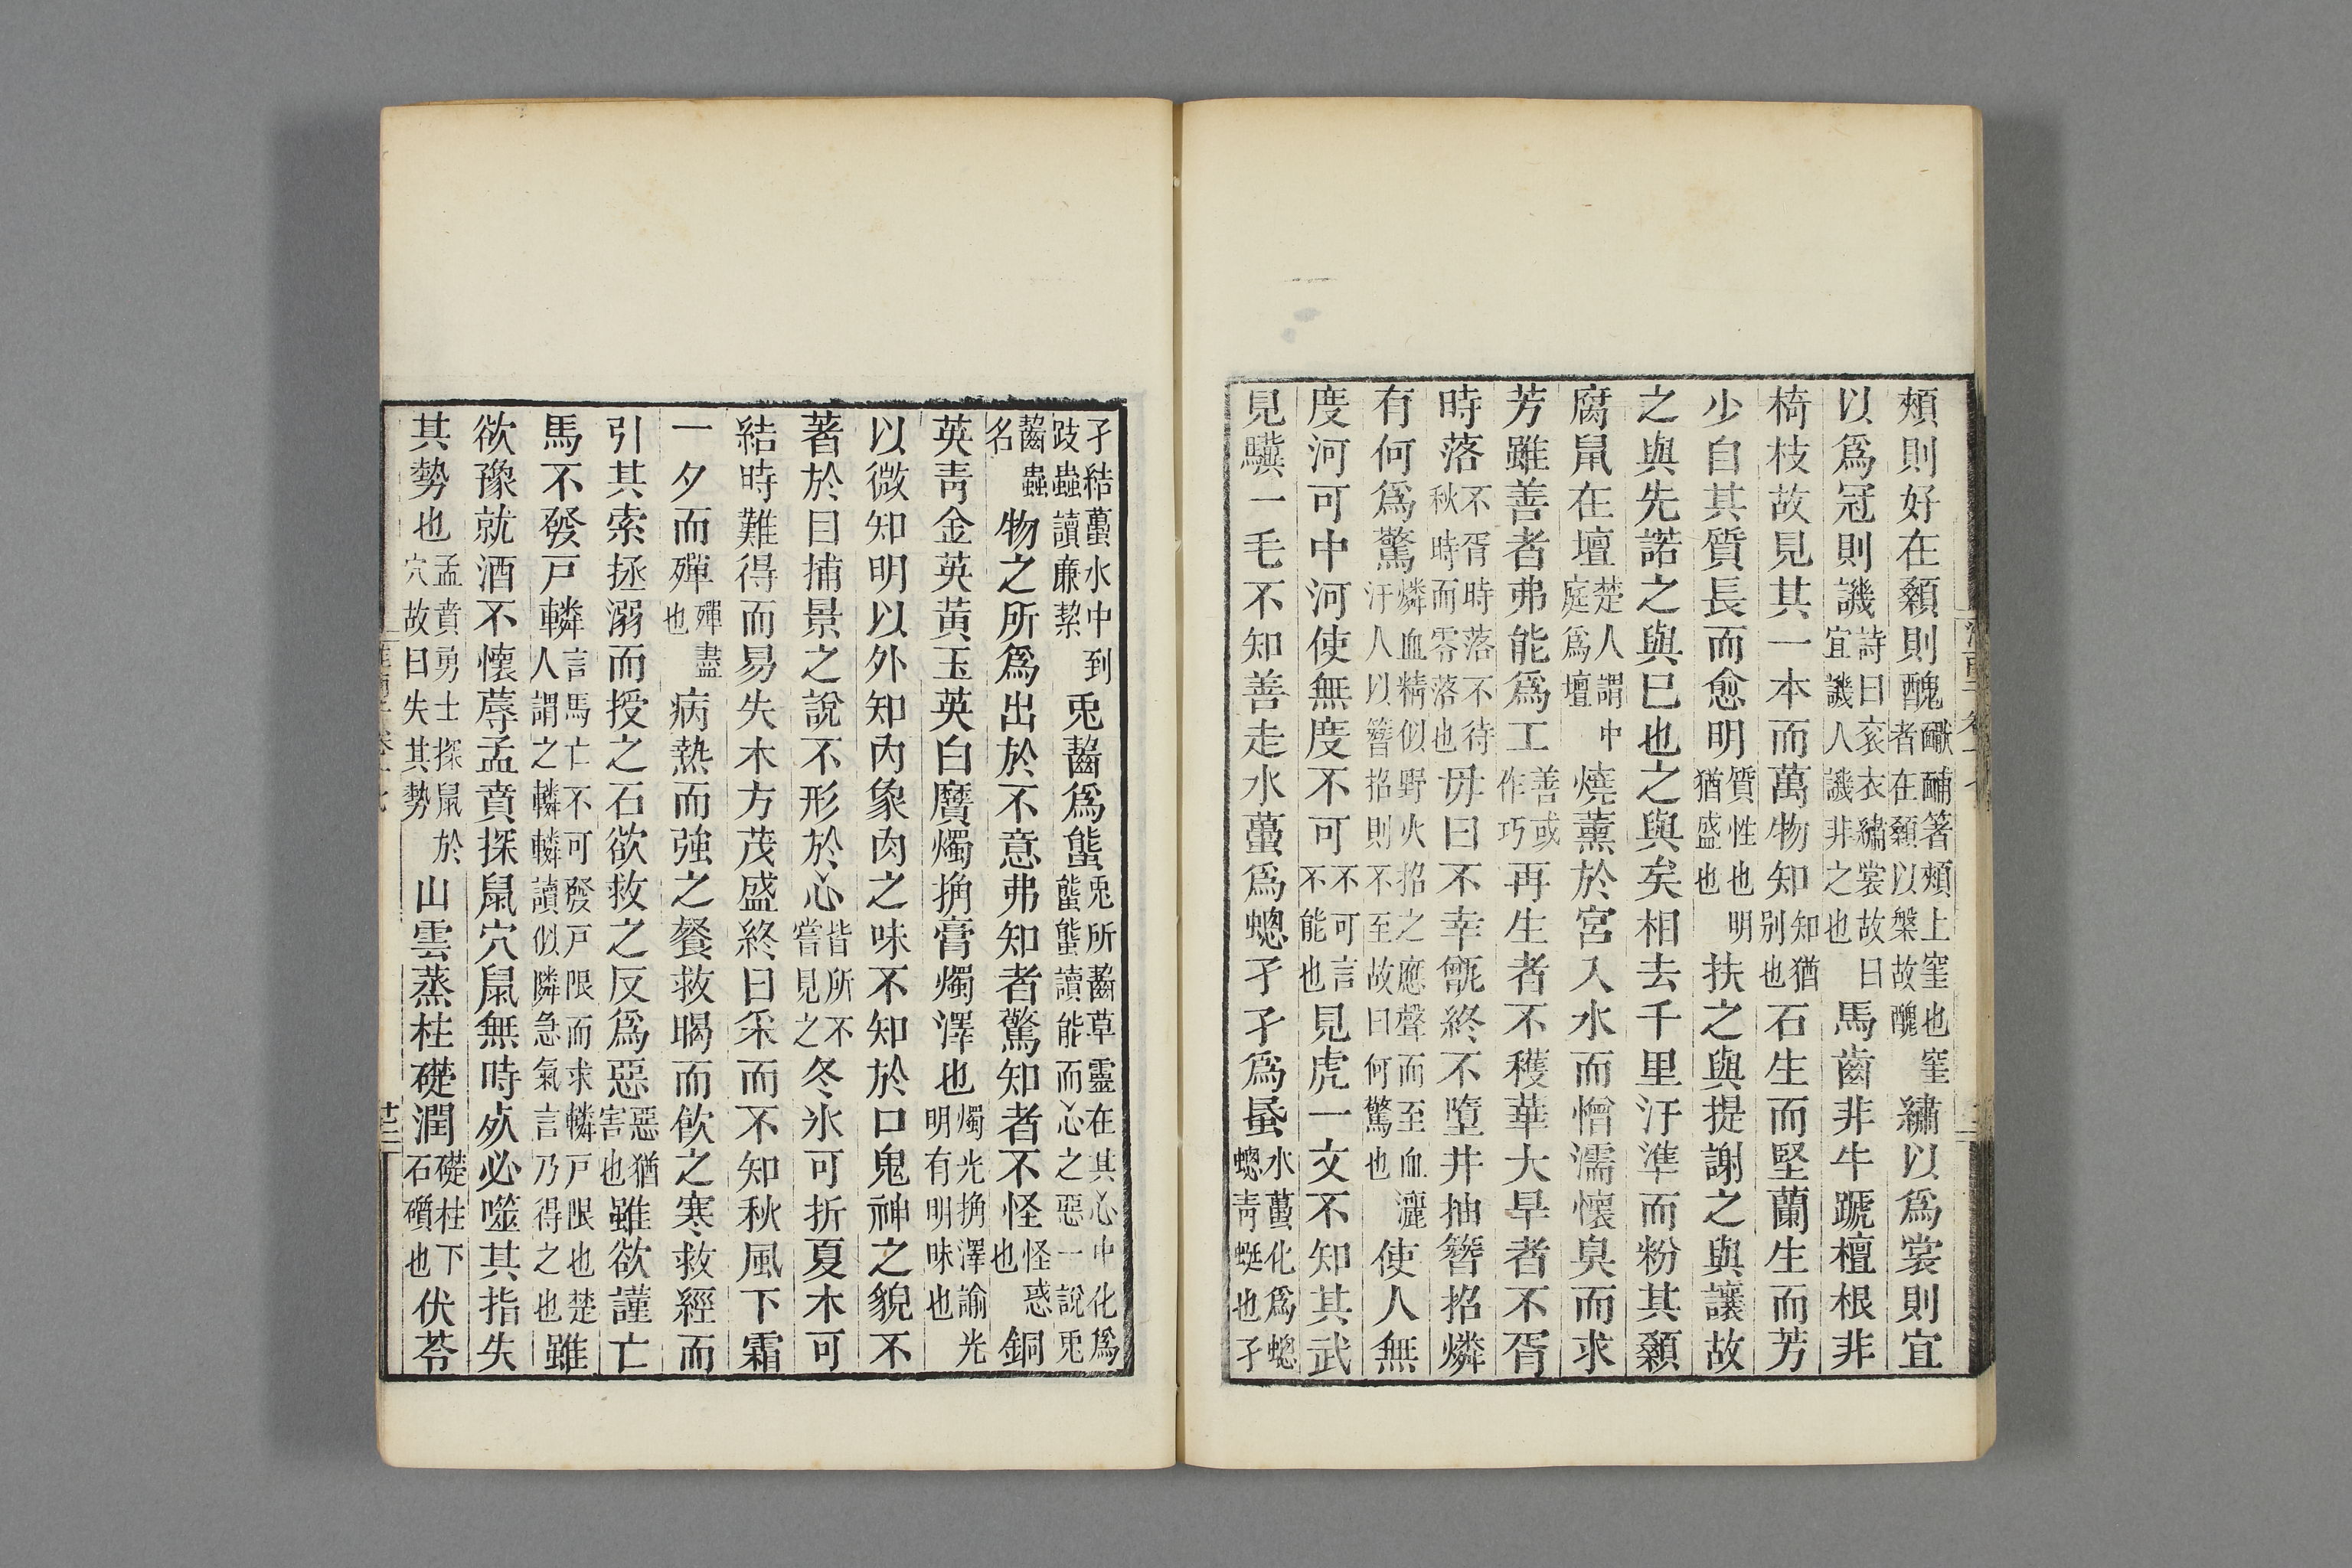 頰則好在顙則醜䤘䤔箸頰上窐也窐者在顙以槃故醜繡以爲裳則宜
以爲冠則譏詩曰衮衣繡裳故曰宜譏人譏非之也馬齒非牛蹏檀根非
椅枝故見其一本而萬物知知猶别也石生而堅蘭生而芳
少自其質長而愈明質性也明猶盛也扶之與提謝之與讓故
之與先諾之與已也之與矣相去千里汙準而粉其顙
腐鼠在壇楚人謂中庭爲壇燒薰於宮入水而憎濡懷臭而求
芳雖善者弗能爲工善或作巧再生者不穫華大旱者不胥
時落不胥時落不待秋時而零落也毋曰不幸甑終不墮井抽簪招燐
有何爲驚燐血精似野火招之應聲而至血灑汙人以簪招則不至故曰何驚也使人無
度河可中河使無度不可不可言不能也見虎一文不知其武
見驥一毛不知善走水蠆爲蟌孑孑爲蟁水蠆化爲蟌蟌靑蜓也孑
孑結蠆水中到跂蟲讀廉絜兎齧爲螚兎所齧草靈在其心中化爲螚螚讀能而心之惡一說兎
齧蟲名物之所爲出於不意弗知者驚知者不怪怪惑也銅
英靑金英黃玉英白黂燭捔膏燭澤也燭光捔澤諭光明有明昧也
以微知明以外知內象肉之味不知於口鬼神之貌不
著於目捕景之說不形於心皆所不嘗見之冬氷可折夏木可
結時難得而易失木方茂盛終日采而不知秋風下霜
一夕而殫殫盡也病熱而強之餐救暍而飮之寒救經而
引其索拯溺而授之石欲救之反爲惡惡猶害也雖欲謹亡
馬不發戸轔言馬亡不可發戸限而求轔戸限也楚人謂之轔轔讀似隣急氣言乃得之也雖
欲豫就酒不懷蓐孟賁探鼠穴鼠無時死必噬其指失
其勢也孟賁勇士探鼠於穴故曰失其勢山雲蒸柱礎潤礎柱下石礩也伏苓